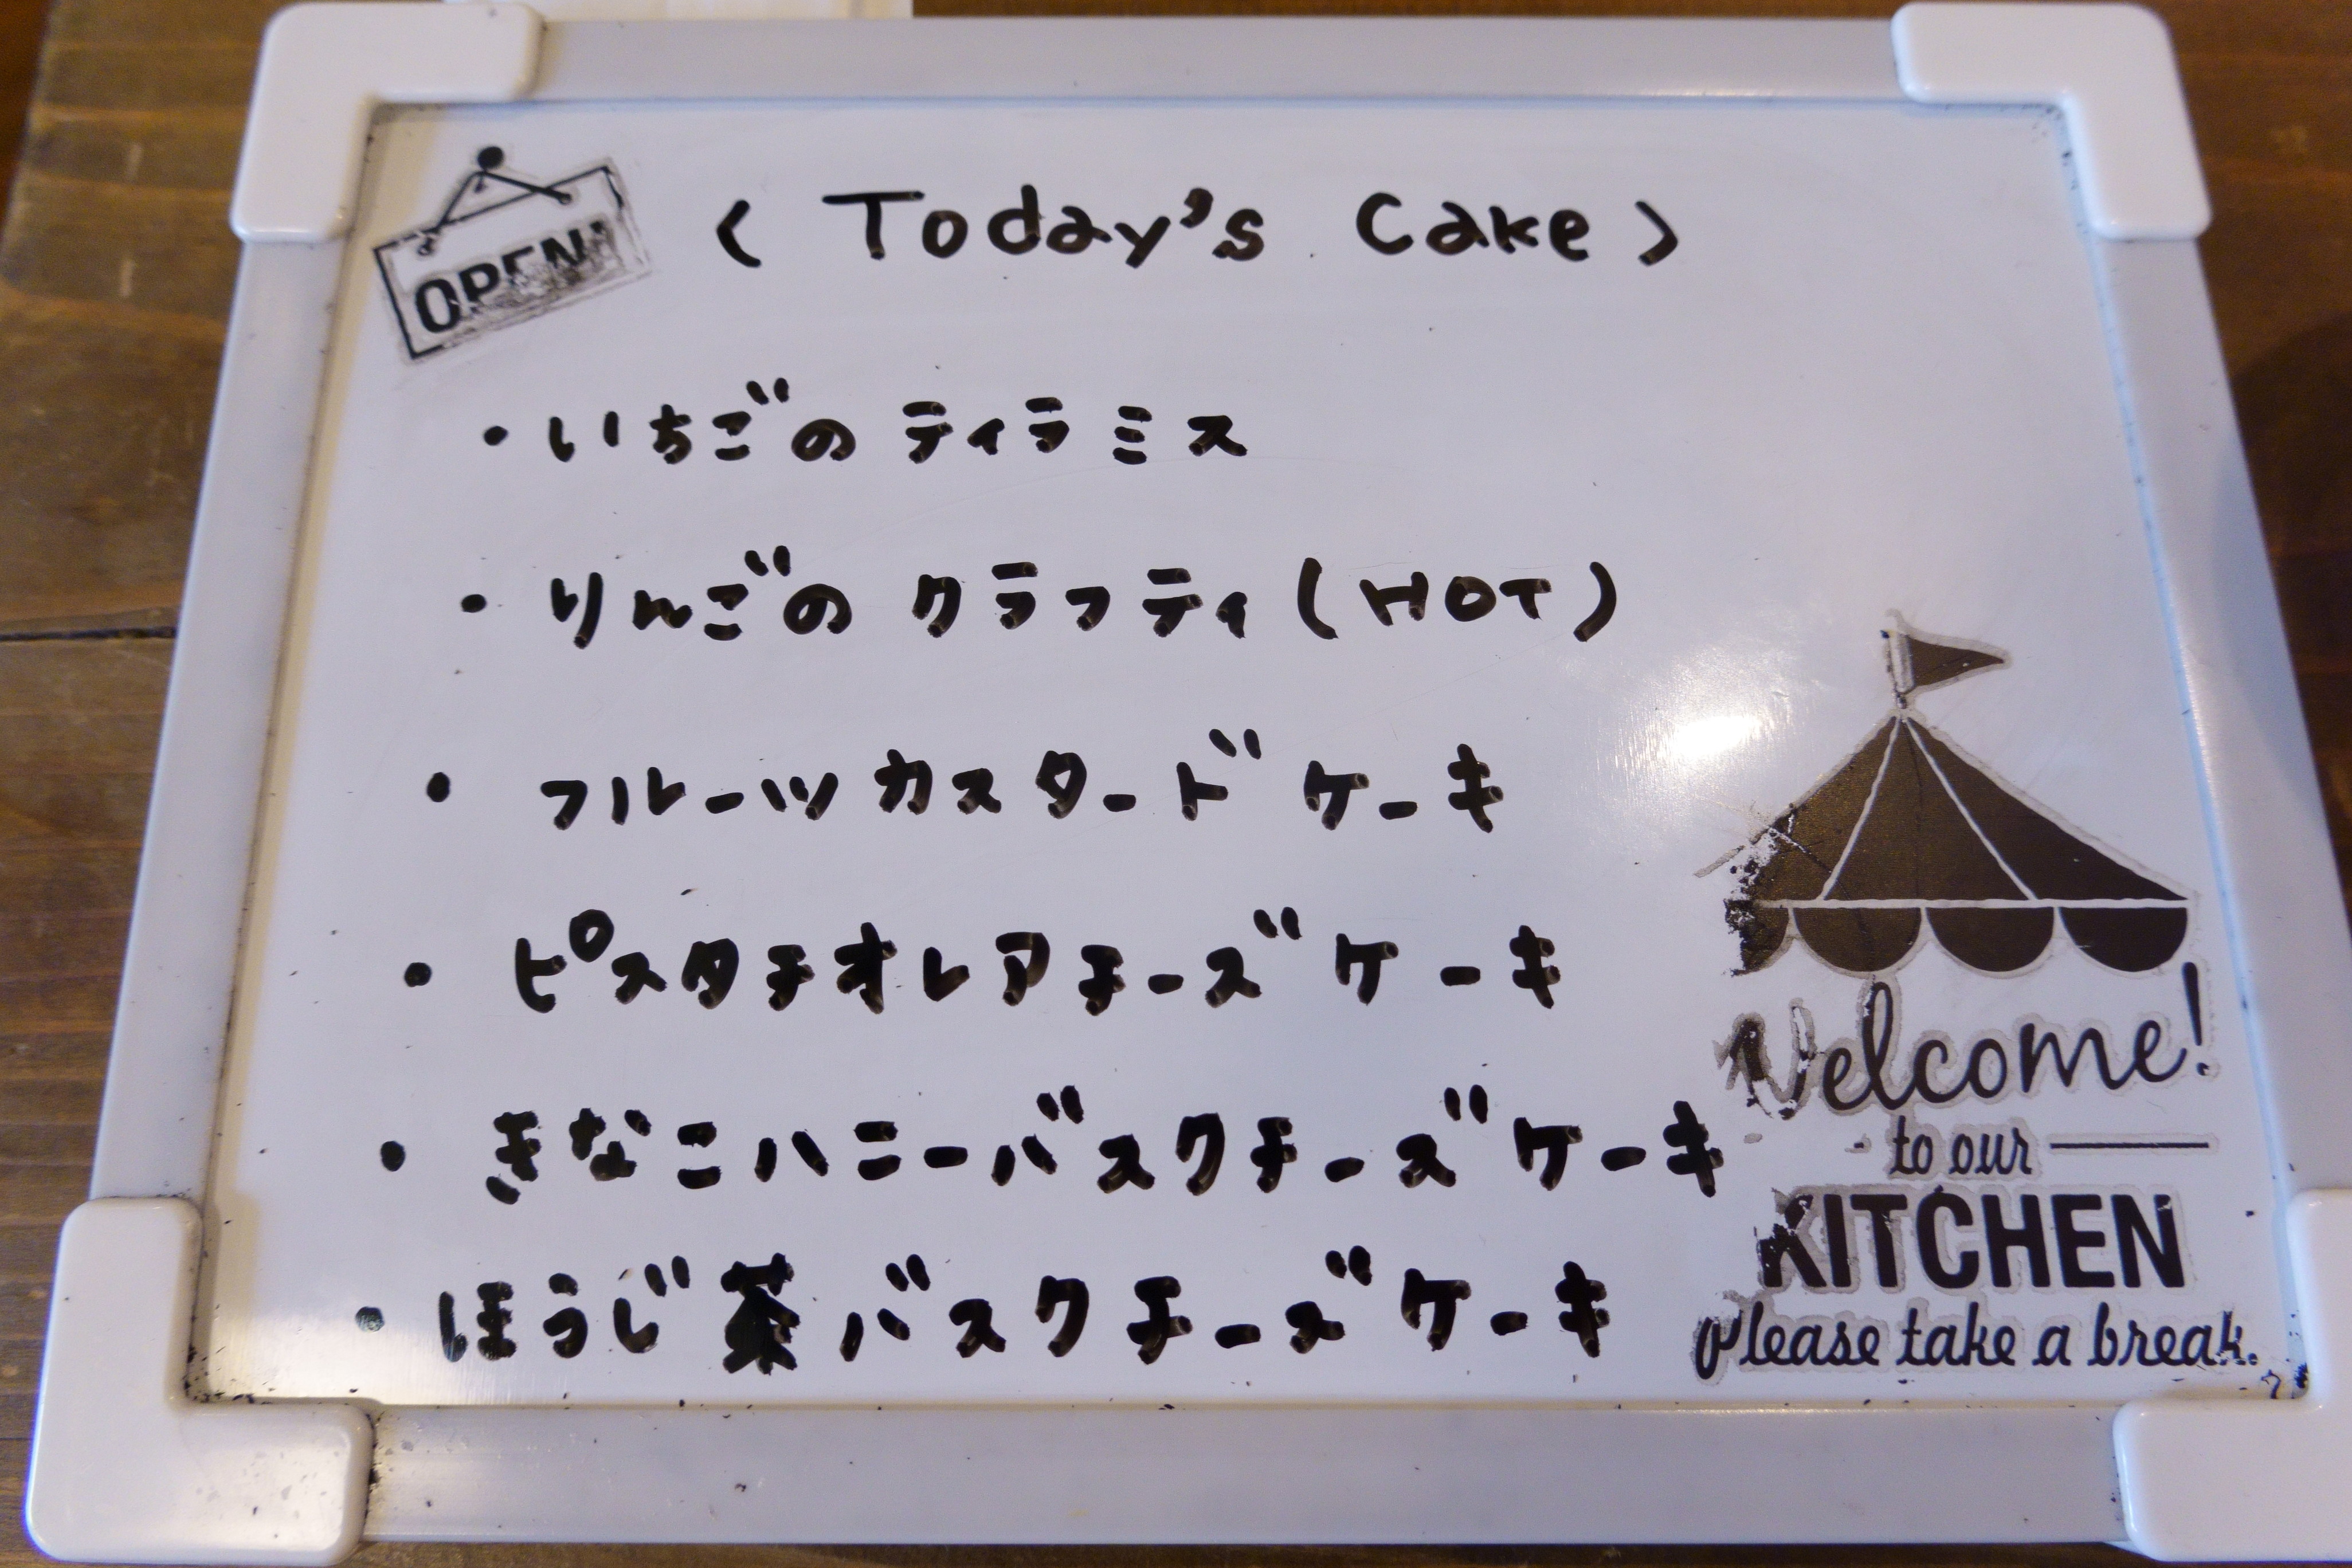 OPEN!
< Today's Cake >
・いちごの ティラミス
・りんごの クラフティ (HOT)
・フルーツカスタード ケーキ
・ピスタチオレアチーズケーキ
・きなこハニーバスクチーズケーキ
・ほうじ茶バスクチーズケーキ
Welcome!
to our
KITCHEN
Please take a break.